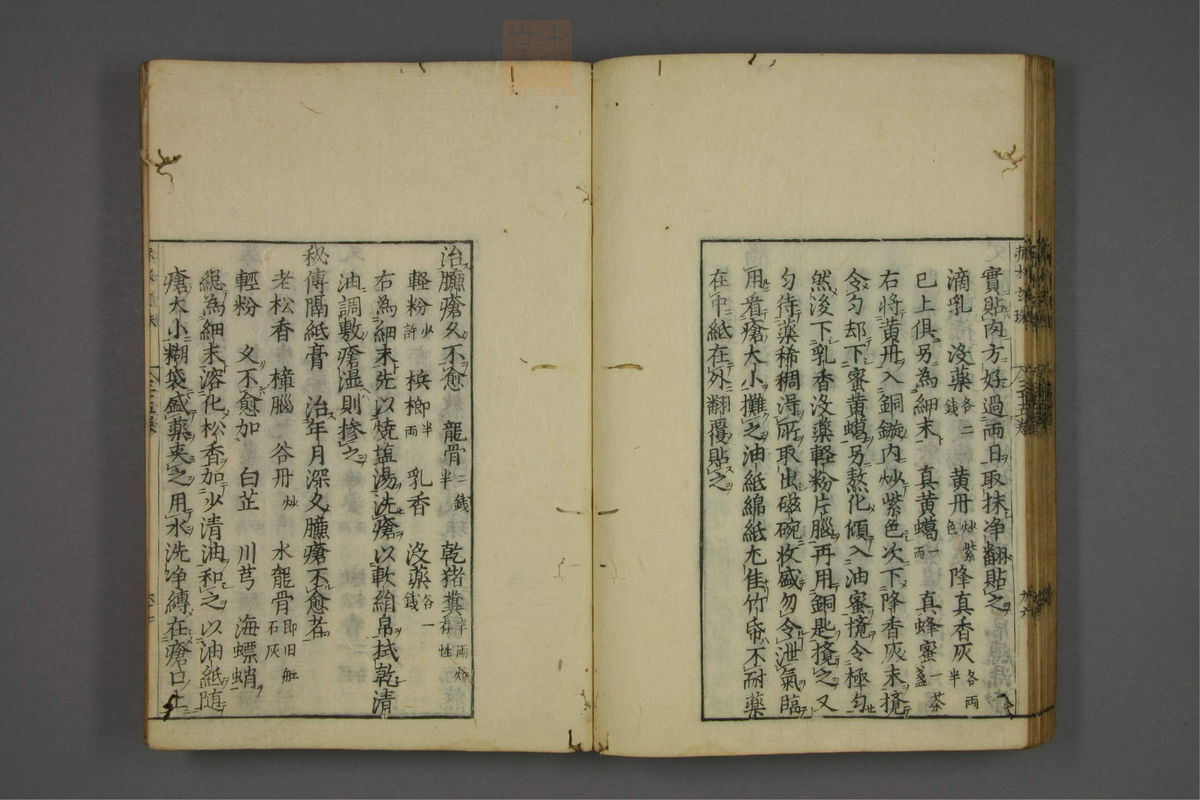 實貼内方好過両日取抹净翻貼之
滴乳　没藥各二錢　黄丹炒紫色　降真香灰各両半
已上俱另為細末　真黄蠟一両　真蜂蜜一茶盞
右將黄丹入銅鏇内炒紫色次下降香灰末攪
令匀却下蜜黄蠟另熬化傾入油蜜攪令極匀
然後下乳香没藥軽粉片腦再用銅匙攪之又
匀待藥稀稠淂所取出磁碗收盛勿令泄氣臨
用看瘡大小攤之油紙綿紙尤佳竹帋不耐藥
在巾紙在外翻覆貼之
治臁瘡久不愈　龍骨二錢半　乾猪糞半両燒存性
軽粉少許　梹榔半両　乳香　没藥各一錢
右為細末先以燒塩湯洗瘡以軟絹帛拭乾清
油調敷瘡湿則摻之
秘傳隔紙膏　治年月深久臁瘡不愈者
老松香　樟腦　谷丹炒　水龍骨即旧舡石灰
輕粉　久不愈加　白芷　川芎　海螵蛸
緫為細末溶化松香加少清油和之以油紙随
瘡大小糊袋盛藥夾之用水洗净縛在瘡口上